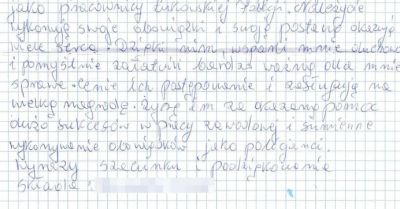 jako pracownicy Łukowskiej Policji. Należycie
wykonuje swoje obowiązki i swoją postawą okazują
wiele serca. Dzięki nim, wsparli mnie duchowo
i pomyślnie załatwili bardzo ważną dla mnie
sprawę. Cenię ich postępowanie i zasługują na
wielką nagrodę. Życzę im za okazaną pomoc
dużo sukcesów w pracy zawodowej i sumienne
wykonywanie obowiązków jako policjanci.
Wyrazy szacunku i podziękowania
składa: